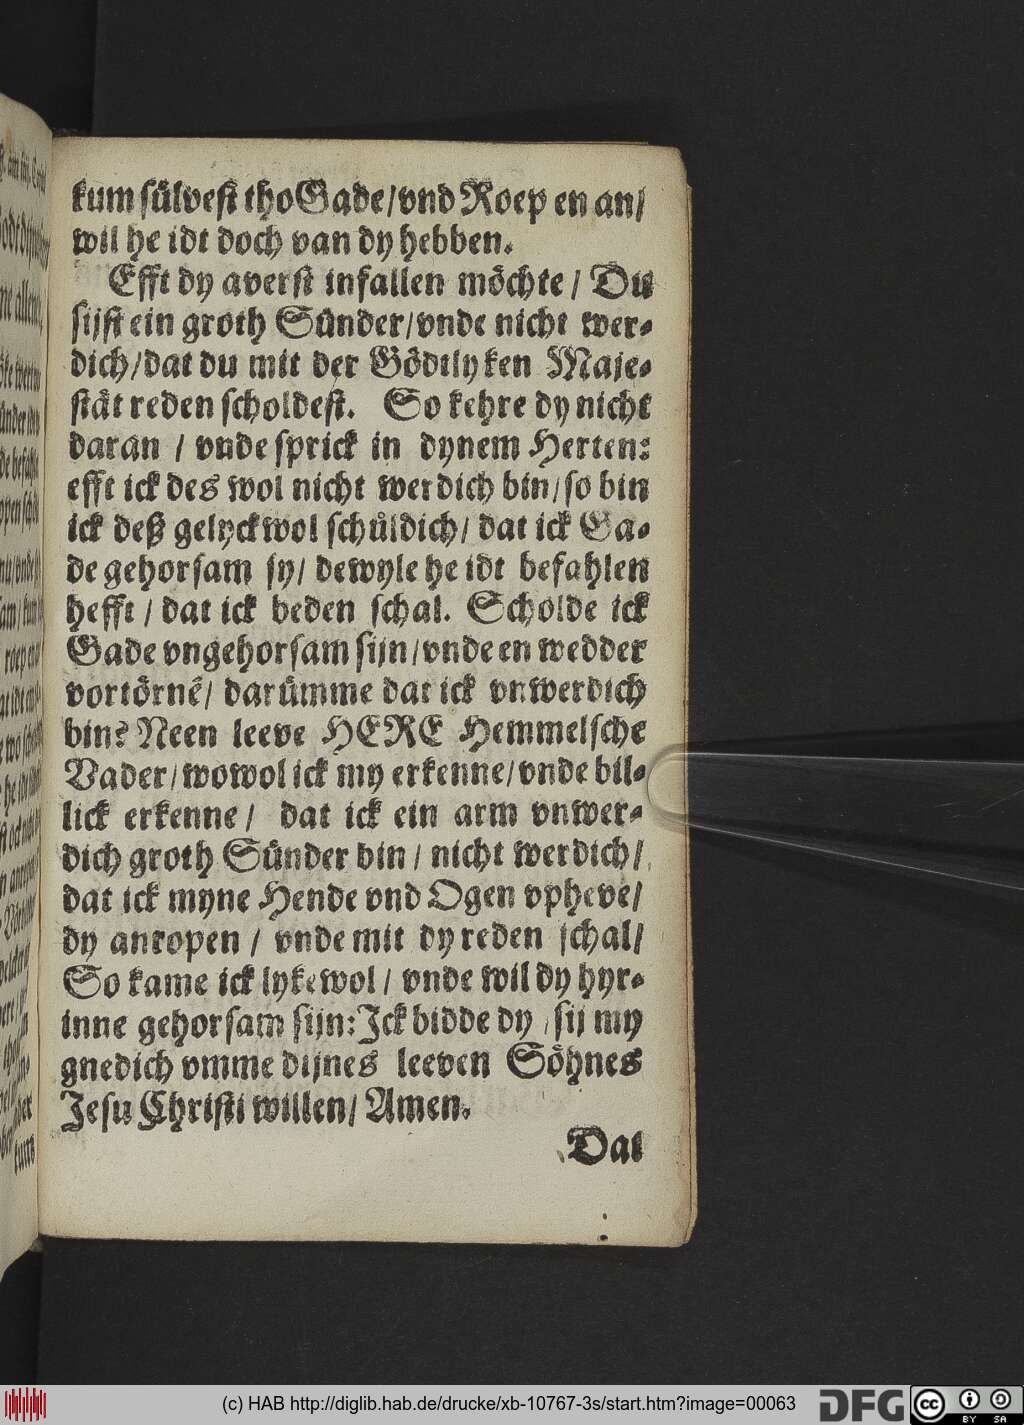 kum sülvest tho Gade / vnd Roep en an /
wil he idt doch van dy hebben.
Efft dy averst infallen möchte / Du
sijst ein groth Sünder / vnde nicht wer-
dich / dat du mit der Gödtlyken Maje-
stät reden scholdest. So kehre dy nicht
daran / vnde sprick in dynem Herten:
efft ick des wol nicht werdich bin / so bin
ick deß gelyckwol schůldich / dat ick Ga-
de gehorsam sy / dewyle he idt befahlen
hefft / dat ick beden schal. Scholde ick
Gade vngehorsam sijn / vnde en wedder
vortörnē / darümme dat ick vnwerdich
bin? Neen leeve HERE Hemmelsche
Vader / wowol ick my erkenne / vnde bil-
lick erkenne / dat ick ein arm vnwer-
dich groth Sünder bin / nicht werdich /
dat ick myne Hende vnd Ogen vpheve /
dy anropen / vnde mit dy reden schal /
So kame ick lykewol / vnde wil dy hyr-
inne gehorsam sijn: Ick bidde dy / sij my
gnedich vmme dijnes leeven Söhnes
Jesu Christi willen / Amen.
Dat
(c) HAB http://diglib.hab.de/drucke/xb-10767-3s/start.htm?image=00063
DFG
cc BY SA